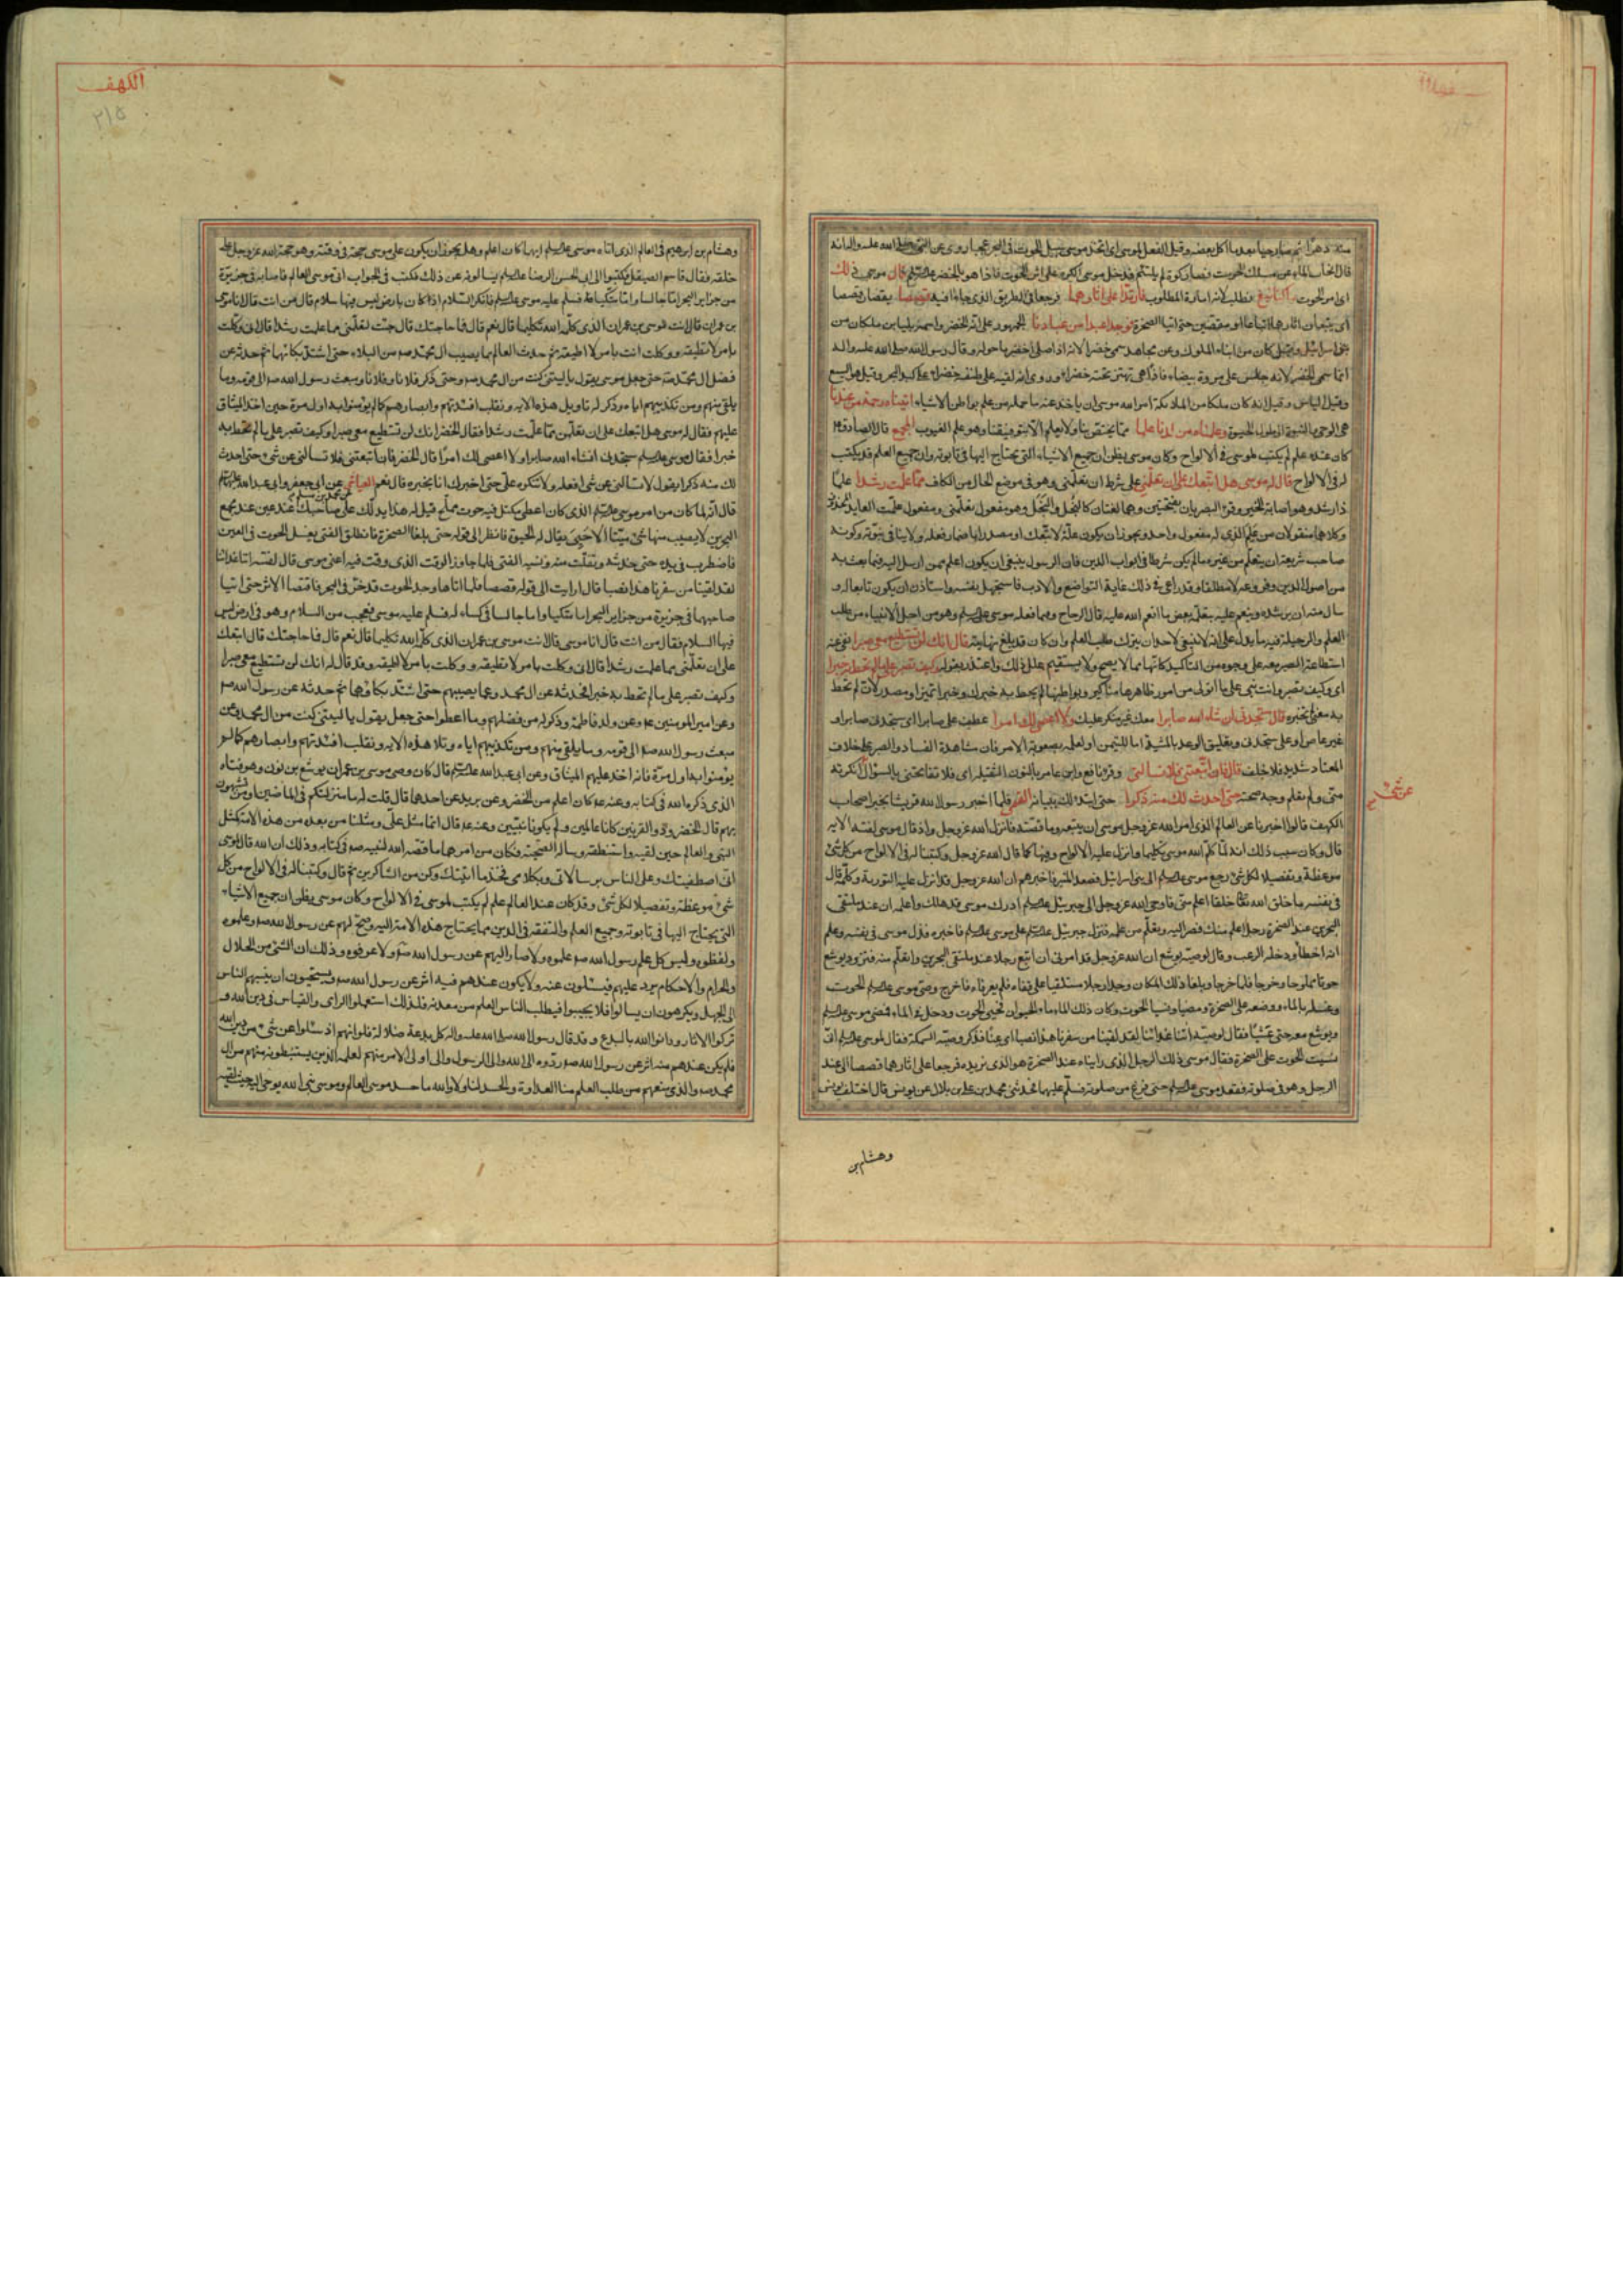 منه دهرا ثم صار حيا بعد ما اكل بعضه وقيل الفعل لموسى اى اتخذ موسى سبيل الحوت فى البحر عجبا روى عن النبى صلى الله عليه واله انه
قال انجاب الماء عن مسلك الحوت فصار كوة لم يلتئم فدخل موسى الكوة على اثر الحوت فاذا هو بالخضر قال موسى ذلك
اى امر الحوت ما كنا نبغ نطلب لانه امارة المطلوب فارتدا على اثارهما فرجعا فى الطريق الذى جاءا فيه قصصا يقصان قصصا
اى يتبعان اثارهما اتباعا او مقتصين حتى اتيا الصخرة فوجدا عبدا من عبادنا الجمهور على انه الخضر واسمه بليا بن ملكان من
بنى اسرائيل وقيل كان من ابناء الملوك وعن مجاهد سمى خضرا لانه اذا صلى اخضر ما حوله وقال رسول الله صلى الله عليه واله
انما سمى الخضر لانه جلس على فروة بيضاء فاذا هى تهتز تحته خضراء وروى انه لقيه على طنفسة خضراء على كبد البحر وقيل هو اليسع
وقيل الياس وقيل انه كان ملكا من الملائكة امر الله موسى ان ياخذ عنه ما حمله من علم بواطن الاشياء اتيناه رحمة من عندنا
هى الوحى والنبوة او طول الحيوة وعلمناه من لدنا علما مما يختص بنا ولا يعلم الا بتوفيقنا وهو علم الغيوب المجمع قال الصادق
كان عنده علم لم يكتب لموسى فى الالواح وكان موسى يظن ان جميع الاشياء التى يحتاج اليها فى تابوته وان جميع العلم قد كتب
له فى الالواح قال له موسى هل اتبعك على ان تعلمنى على شرط ان تعلمنى وهو فى موضع الحال من الكاف مما علمت رشدا علما
ذا رشد وهو اصابة الخير وقرء البصريان بفتحتين وهما لغتان كالبخل والبخل وهو مفعول تعلمنى ومفعول علمت العايد المحذوف
وكلاهما منقولان من علم الذى له مفعول واحد ويجوز ان يكون علة لاتبعك او مصدرا باضمار فعله ولا ينافى نبوته وكونه
صاحب شريعة ان يتعلم من غيره ما لم يكن شرطا فى ابواب الدين فان الرسول ينبغى ان يكون اعلم ممن ارسل اليه فيما بعث به
من اصول الدين وفروعه لا مطلقا وقد راعى فى ذلك غاية التواضع والادب فاستجهل نفسه واستاذن ان يكون تابعا له و
سال منه ان يرشده وينعم عليه بتعليم بعض ما انعم الله عليه قال الزجاج وفيما فعله موسى وهو من اجل الانبياء من طلب
العلم والرحلة فيه ما يدل على انه لا ينبغى لاحد ان يترك طلب العلم وان كان قد بلغ نهايته قال انك لن تستطيع معى صبرا نفى عنه
استطاعة الصبر معه على وجوه من التاكيد كانها مما لا يصح ولا يستقيم علل ذلك واعتذر بقوله وكيف تصبر على ما لم تحط به خبرا
اى وكيف تصبر وانت نبى على ما اتولى من امور ظاهرها مناكير وبواطنها لم يحط به خبرك وخبرا تميز او مصدر لان لم تحط
به بمعنى تخبره قال ستجدنى ان شاء الله صابرا معك غير منكر عليك ولا اعصى لك امرا عطف على صابرا اى ستجدنى صابرا و
غير عاص او على ستجدنى وتعليق الوعد بالمشية اما للتيمن او لعلمه بصعوبة الامر فان مشاهدة الفساد والصبر على خلاف
المعتاد شديد فلا خلف قال فان اتبعتنى فلا تسالنى وقرء نافع وابن عامر بالنون الثقيلة اى فلا تفاتحنى بالسؤال انكرته
عن شئ
منى ولم تعلم وجه صحته حتى احدث لك منه ذكرا حتى ابتدئك ببيانه القمى فلما اخبر رسول الله قريشا بخبر اصحاب
الكهف قالوا اخبرنا عن العالم الذى امر الله عز وجل موسى ان يتبعه وما قصته فانزل الله عز وجل واذ قال موسى لفتيه الايه
قال وكان سبب ذلك انه لما كلم الله موسى تكليما وانزل عليه الالواح وفيها كما قال الله عز وجل وكتبنا له فى الالواح من كل شئ
موعظة وتفصيلا لكل شئ رجع موسى الى بنى اسرائيل فصعد المنبر فاخبرهم ان الله عز وجل قد انزل عليه التورية وكلمه قال
فى نفسه ما خلق الله تعالى خلقا اعلم منى فاوحى الله عز وجل الى جبرئيل ادرك موسى قد هلك واعلمه ان عند ملتقى
البحرين عند الصخرة رجلا اعلم منك فصر اليه وتعلم من علمه فنزل جبرئيل على موسى فاخبره فذل موسى فى نفسه وعلم
انه اخطا ودخله الرعب وقال لوصيه يوشع ان الله عز وجل قد امرنى ان اتبع رجلا عند ملتقى البحرين واتعلم منه فتزود يوشع
حوتا مملوحا وخرجا فلما خرجا وبلغا ذلك المكان وجدا رجلا مستلقيا على قفاه فلم يعرفاه فاخرج وصى موسى الحوت
وغسله بالماء ووضعه على الصخرة ومضيا ونسيا الحوت وكان ذلك الماء ماء الحيوان فحيى الحوت ودخل فى الماء فمضى موسى
ويوشع معه حتى عشيا فقال لوصيه اتنا غدائنا لقد لقينا من سفرنا هذا نصبا اى عناء فذكر وصيه السمكة فقال لموسى انى
نسيت الحوت على الصخرة فقال موسى ذلك الرجل الذى رايناه عند الصخرة هو الذى نريده فرجعا على اثارهما قصصا الى عند
الرجل وهو فى صلوته فقعد موسى حتى فرغ من صلوته فسلم عليهما فحدثنى محمد بن على بن بلال عن يونس قال اختلف يونس
وهشام بن
الكهف
٢١٥
وهشام بن ابرهيم فى العالم الذى اتاه موسى ايهما كان اعلم وهل يجوز ان يكون على موسى حجة فى وقته وهو حجة الله عز وجل على
خلقه فقال قاسم الصيقل فكتبوا الى ابى الحسن الرضا يسالونه عن ذلك فكتب فى الجواب اتى موسى العالم فاصابه فى جزيرة
من جزاير البحر اما جالسا واما متكيا فسلم عليه موسى فانكر السلام اذ كان بارض ليس بها سلام قال من انت قال انا موسى
بن عمران قال انت موسى بن عمران الذى كلمه الله تكليما قال نعم قال فما حاجتك قال جئت لتعلمنى مما علمت رشدا قال انى وكلت
بامر لا تطيقه ووكلت انت بامر لا اطيقه ثم حدثه العالم بما يصيب ال محمد من البلاء حتى اشتد بكائهما ثم حدثه عن
فضل ال محمد حتى جعل موسى يقول يا ليتنى كنت من ال محمد وحتى ذكر فلانا وفلانا ومبعث رسول الله الى قومه وما
يلقى منهم ومن تكذيبهم اياه وذكر له تاويل هذه الايه ونقلب افئدتهم وابصارهم كما لم يؤمنوا به اول مرة حين اخذ الميثاق
عليهم فقال له موسى هل اتبعك على ان تعلمن مما علمت رشدا فقال الخضر انك لن تستطيع معى صبرا وكيف تصبر على ما لم تحط به
خبرا فقال موسى ستجدنى انشاء الله صابرا ولا اعصى لك امرا قال الخضر فان اتبعتنى فلا تسالنى عن شئ حتى احدث
لك منه ذكرا يقول لا تسالنى عن شئ افعله ولا تنكره على حتى اخبرك انا بخبره قال نعم العياشى عن ابى جعفر وابى عبد الله
قال انه لما كان من امر موسى الذى كان اعطى مكتل فيه حوت مملح قيل له هذا يدلك على صاحبك عند عين عند مجمع
البحرين لا يصيب منها شئ ميتا الا حيى يقال له الحيوة فانظر الى قوله حتى بلغا الصخرة فانطلق الفتى يغسل الحوت فى العين
فاضطرب فى يده حتى خدشه وتفلت منه ونسيه الفتى فلما جاوز الوقت الذى وقت فيه اعنى موسى قال لفتيه اتنا غدائنا
لقد لقينا من سفرنا هذا نصبا قال ارايت الى قوله قصصا فلما اتاها وجد الحوت قد خر فى البحر فاقتصا الاثر حتى اتيا
صاحبهما فى جزيرة من جزاير البحر اما متكيا واما جالسا فى كساء له فسلم عليه موسى فعجب من السلام وهو فى ارض ليس
فيها السلام فقال من انت قال انا موسى قال انت موسى بن عمران الذى كلمه الله تكليما قال نعم قال فما حاجتك قال اتبعك
على ان تعلمنى مما علمت رشدا قال انى وكلت بامر لا تطيقه ووكلت بامر لا اطيقه وقد قال له انك لن تستطيع معى صبرا
وكيف تصبر على ما لم تحط به خبرا فحدثه عن ال محمد وعما يصيبهم حتى اشتد بكاؤهما ثم حدثه عن رسول الله
وعن امير المومنين وعن ولد فاطمة وذكر له من فضلهم وما اعطوا حتى جعل يقول يا ليتنى كنت من ال محمد وعن
مبعث رسول الله الى قومه وما يلقى منهم ومن تكذيبهم اياه وتلا هذه الايه ونقلب افئدتهم وابصارهم كما لم
يؤمنوا به اول مرة فانه اخذ عليهم الميثاق وعن ابى عبد الله قال كان وصى موسى بن عمران يوشع بن نون وهو فتاه
الذى ذكره الله فى كتابه وعنه كان اعلم من الخضر وعن بريد عن احدهما قال قلت له ما منزلتكم فى الماضين او من تشبهون
بهم قال الخضر وذو القرنين كانا عالمين ولم يكونا نبيين وعنه قال انما مثل على ومثلنا من بعده من هذه الامة كمثل
النبى والعالم حين لقيه واستنطقه وساله الصحبة فكان من امرهما ما قصه الله لنبيه فى كتابه وذلك ان الله قال لموسى
انى اصطفيتك على الناس برسالاتى وبكلامى فخذ ما اتيتك وكن من الشاكرين ثم قال وكتبنا له فى الالواح من كل
شئ موعظة وتفصيلا لكل شئ وقد كان عند العالم علم لم يكتب لموسى فى الالواح وكان موسى يظن ان جميع الاشياء
التى يحتاج اليها فى تابوته وجميع العلم والتفقه فى الدين مما يحتاج هذه الامة اليه وصح لهم عن رسول الله وعلموه
ولفظوه وليس كل علم رسول الله علموه ولا صار اليهم عن رسول الله ولا عرفوه وذلك ان الشئ من الحلال
والحرام والاحكام يرد عليهم فيسئلون عنه ولا يكون عندهم فيه اثر عن رسول الله ويستحيون ان ينسبهم الناس
الى الجهل ويكرهون ان يسالوا فلا يجيبوا فيطلب الناس العلم من معدنه فلذلك استعملوا الراى والقياس فى دين الله و
تركوا الاثار ودانوا الله بالبدع وقد قال رسول الله صلى الله عليه واله كل بدعة ضلالة فلو انهم اذ سئلوا عن شئ من دين الله
فلم يكن عندهم منه اثر عن رسول الله ردوه الى الله والى الرسول والى اولى الامر منهم لعلمه الذين يستنبطونه منهم من ال
محمد والذى منعهم من طلب العلم منا العداوة والحسد لنا ولا والله ما حسد موسى العالم وموسى نبى الله يوحى اليه حيث لقيه